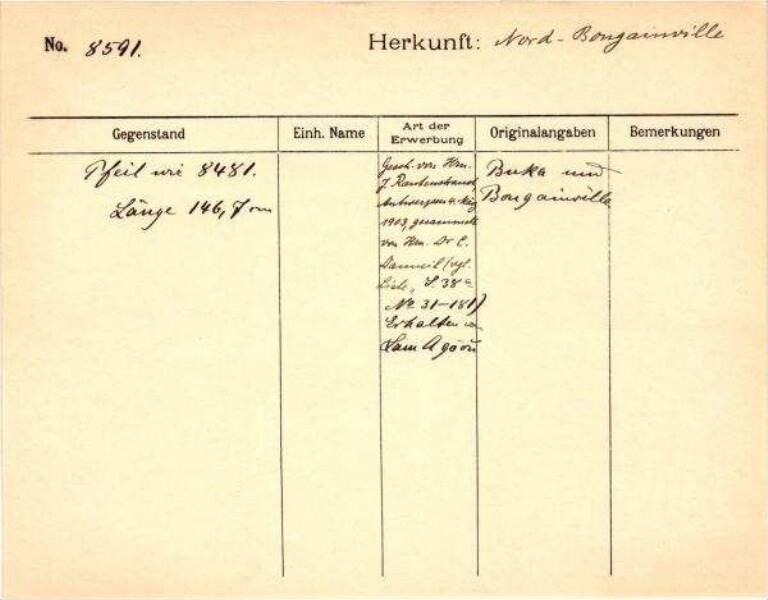 No. 8591. Herkunft: Nord-Bougainville
Gegenstand Einh. Name Art der Erwerbung Originalangaben Bemerkungen
Pfeil wie 8481.
Länge 146,7 cm
Gesch. von Hrn.
J. Rautenstrauch,
Antwerpen 4. März
1903, gesammelt
von Hrn. Dr C.
Danneil (vgl.
Liste, S. 38
No 31-181)
Erhalten
Buka und
Bougainville